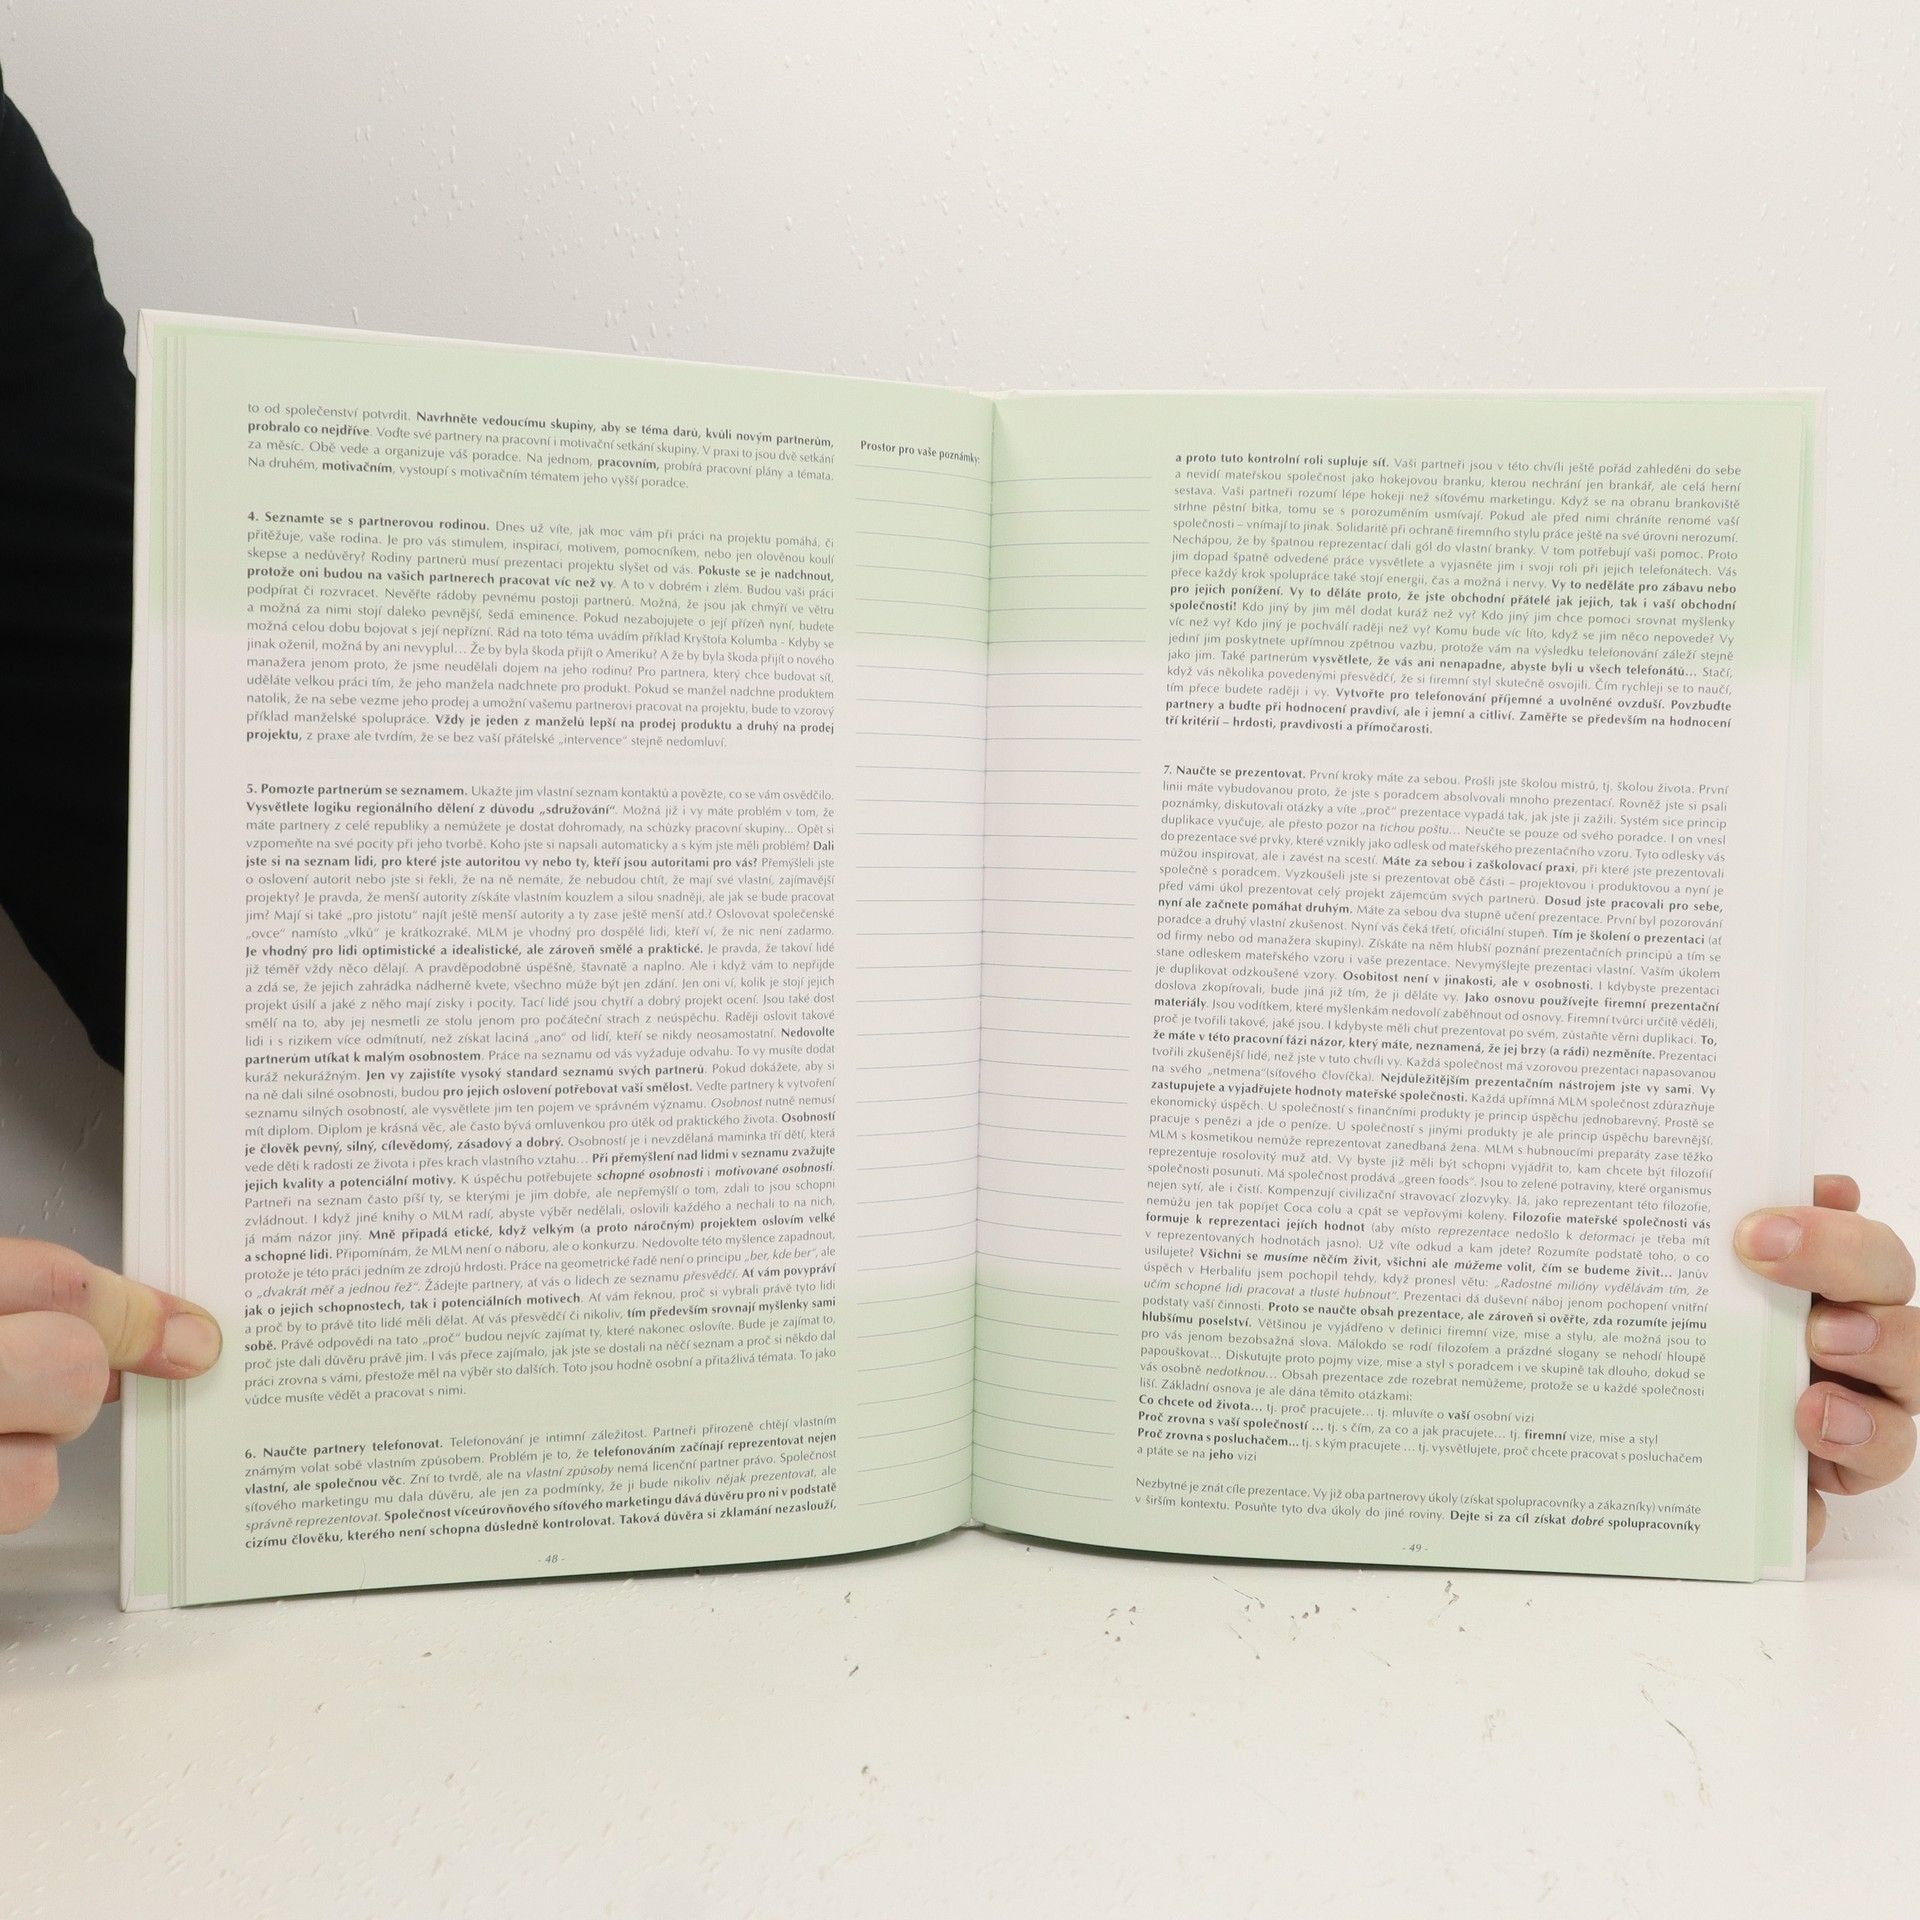 to od společenství potvrdit. Navrhněte vedoucímu skupiny, aby se téma darů, kvůli novým partnerům,
probralo co nejdříve. Voďte své partnery na pracovní i motivační setkání skupiny. V praxi to jsou dvě setkání
za měsíc. Obě vede a organizuje váš poradce. Na jednom, pracovním, probírá pracovní plány a témata.
Na druhém, motivačním, vystoupí s motivačním tématem jeho vyšší poradce.
4. Seznamte se s partnerovou rodinou. Dnes už víte, jak moc vám při práci na projektu pomáhá, či
přitěžuje, vaše rodina. Je pro vás stimulem, inspirací, motivem, pomocníkem, nebo jen olověnou koulí
skepse a nedůvěry? Rodiny partnerů musí prezentaci projektu slyšet od vás. Pokuste se je nadchnout,
protože oni budou na vašich partnerech pracovat víc než vy. A to v dobrém i zlém. Budou vaši práci
podpírat či rozvracet. Nevěřte rádoby pevnému postoji partnerů. Možná, že jsou jak chmýří ve větru
a možná za nimi stojí daleko pevnější, šedá eminence. Pokud nezabojujete o její přízeň nyní, budete
možná celou dobu bojovat s její nepřízní. Rád na toto téma uvádím příklad Kryštofa Kolumba - Kdyby se
jinak oženil, možná by ani nevyplul... Že by byla škoda přijít o Ameriku? A že by byla škoda přijít o nového
manažera jenom proto, že jsme neudělali dojem na jeho rodinu? Pro partnera, který chce budovat síť,
uděláte velkou práci tím, že jeho manžela nadchnete pro produkt. Pokud se manžel nadchne produktem
natolik, že na sebe vezme jeho prodej a umožní vašemu partnerovi pracovat na projektu, bude to vzorový
příklad manželské spolupráce. Vždy je jeden z manželů lepší na prodej produktu a druhý na prodej
projektu, z praxe ale tvrdím, že se bez vaší přátelské „intervence“ stejně nedomluví.
5. Pomozte partnerům se seznamem. Ukažte jim vlastní seznam kontaktů a povězte, co se vám osvědčilo.
Vysvětlete logiku regionálního dělení z důvodu „sdružování“. Možná již i vy máte problém v tom, že
máte partnery z celé republiky a nemůžete je dostat dohromady, na schůzky pracovní skupiny... Opět si
vzpomeňte na své pocity při jeho tvorbě. Koho jste si napsali automaticky a s kým jste měli problém? Dali
jste si na seznam lidi, pro které jste autoritou vy nebo ty, kteří jsou autoritami pro vás? Přemýšleli jste
o oslovení autorit nebo jste si řekli, že na ně nemáte, že nebudou chtít, že mají své vlastní, zajímavější
projekty? Je pravda, že menší autority získáte vlastním kouzlem a silou snadněji, ale jak se bude pracovat
jim? Mají si také „pro jistotu“ najít ještě menší autority a ty zase ještě menší atd.? Oslovovat společenské
„ovce“ namísto „vlků“ je krátkozraké. MLM je vhodný pro dospělé lidi, kteří ví, že nic není zadarmo.
Je vhodný pro lidi optimistické a idealistické, ale zároveň smělé a praktické. Je pravda, že takoví lidé
již téměř vždy něco dělají. A pravděpodobně úspěšně, šťavnatě a naplno. Ale i když vám to nepřijde
a zdá se, že jejich zahrádka nádherně kvete, všechno může být jen zdání. Jen oni ví, kolik je stojí jejich
projekt úsilí a jaké z něho mají zisky i pocity. Tací lidé jsou chytří a dobrý projekt ocení. Jsou také dost
smělí na to, aby jej nesmetli ze stolu jenom pro počáteční strach z neúspěchu. Raději oslovit takové
lidi i s rizikem více odmítnutí, než získat laciná „ano“ od lidí, kteří se nikdy neosamostatní. Nedovolte
partnerům utíkat k malým osobnostem. Práce na seznamu od vás vyžaduje odvahu. To vy musíte dodat
kuráž nekurážným. Jen vy zajistíte vysoký standard seznamů svých partnerů. Pokud dokážete, aby si
na ně dali silné osobnosti, budou pro jejich oslovení potřebovat vaši smělost. Veďte partnery k vytvoření
seznamu silných osobností, ale vysvětlete jim ten pojem ve správném významu. Osobnost nutně nemusí
mít diplom. Diplom je krásná věc, ale často bývá omluvenkou pro útěk od praktického života. Osobností
je člověk pevný, silný, cílevědomý, zásadový a dobrý. Osobností je i nevzdělaná maminka tří dětí, která
vede děti k radosti ze života i přes krach vlastního vztahu... Při přemýšlení nad lidmi v seznamu zvažujte
jejich kvality a potenciální motivy. K úspěchu potřebujete schopné osobnosti i motivované osobnosti.
Partneři na seznam často píší ty, se kterými je jim dobře, ale nepřemýšlí o tom, zdali to jsou schopni
zvládnout. I když jiné knihy o MLM radí, abyste výběr nedělali, oslovili každého a nechali to na nich,
já mám názor jiný. Mně připadá etické, když velkým (a proto náročným) projektem oslovím velké
a schopné lidi. Připomínám, že MLM není o náboru, ale o konkurzu. Nedovolte této myšlence zapadnout,
protože je této práci jedním ze zdrojů hrdosti. Práce na geometrické řadě není o principu „ber, kde ber“, ale
o „dvakrát měř a jednou řež“. Žádejte partnery, ať vás o lidech ze seznamu přesvědčí. Ať vám povypráví
jak o jejich schopnostech, tak i potenciálních motivech. Ať vám řeknou, proč si vybrali právě tyto lidi
a proč by to právě tito lidé měli dělat. Ať vás přesvědčí či nikoliv, tím především srovnají myšlenky sami
sobě. Právě odpovědi na tato „proč“ budou nejvíc zajímat ty, které nakonec oslovíte. Bude je zajímat to,
proč jste dali důvěru právě jim. I vás přece zajímalo, jak jste se dostali na něčí seznam a proč si někdo dal
práci zrovna s vámi, přestože měl na výběr sto dalších. Toto jsou hodně osobní a přitažlivá témata. To jako
vůdce musíte vědět a pracovat s nimi.
6. Naučte partnery telefonovat. Telefonování je intimní záležitost. Partneři přirozeně chtějí vlastním
známým volat sobě vlastním způsobem. Problém je to, že telefonováním začínají reprezentovat nejen
vlastní, ale společnou věc. Zní to tvrdě, ale na vlastní způsoby nemá licenční partner právo. Společnost
síťového marketingu mu dala důvěru, ale jen za podmínky, že ji bude nikoliv nějak prezentovat, ale
správně reprezentovat. Společnost víceúrovňového síťového marketingu dává důvěru pro ni v podstatě
cizímu člověku, kterého není schopna důsledně kontrolovat. Taková důvěra si zklamání nezaslouží,
- 48 -
Prostor pro vaše poznámky:
a proto tuto kontrolní roli supluje síť. Vaši partneři jsou v této chvíli ještě pořád zahleděni do sebe
a nevidí mateřskou společnost jako hokejovou branku, kterou nechrání jen brankář, ale celá herní
sestava. Vaši partneři rozumí lépe hokeji než síťovému marketingu. Když se na obranu brankoviště
strhne pěstní bitka, tomu se s porozuměním usmívají. Pokud ale před nimi chráníte renomé vaší
společnosti – vnímají to jinak. Solidaritě při ochraně firemního stylu práce ještě na své úrovni nerozumí.
Nechápou, že by špatnou reprezentací dali gól do vlastní branky. V tom potřebují vaši pomoc. Proto
jim dopad špatně odvedené práce vysvětlete a vyjasněte jim i svoji roli při jejich telefonátech. Vás
přece každý krok spolupráce také stojí energii, čas a možná i nervy. Vy to neděláte pro zábavu nebo
pro jejich ponížení. Vy to děláte proto, že jste obchodní přátelé jak jejich, tak i vaší obchodní
společnosti! Kdo jiný by jim měl dodat kuráž než vy? Kdo jiný jim chce pomoci srovnat myšlenky
víc než vy? Kdo jiný je pochválí raději než vy? Komu bude víc líto, když se jim něco nepovede? Vy
jediní jim poskytnete upřímnou zpětnou vazbu, protože vám na výsledku telefonování záleží stejně
jako jim. Také partnerům vysvětlete, že vás ani nenapadne, abyste byli u všech telefonátů... Stačí,
když vás několika povedenými přesvědčí, že si firemní styl skutečně osvojili. Čím rychleji se to naučí,
tím přece budete raději i vy. Vytvořte pro telefonování příjemné a uvolněné ovzduší. Povzbuďte
partnery a buďte při hodnocení pravdiví, ale i jemní a citliví. Zaměřte se především na hodnocení
tří kritérií – hrdosti, pravdivosti a přímočarosti.
7. Naučte se prezentovat. První kroky máte za sebou. Prošli jste školou mistrů, tj. školou života. První
linii máte vybudovanou proto, že jste s poradcem absolvovali mnoho prezentací. Rovněž jste si psali
poznámky, diskutovali otázky a víte „proč“ prezentace vypadá tak, jak jste ji zažili. Systém sice princip
duplikace vyučuje, ale přesto pozor na tichou poštu... Neučte se pouze od svého poradce. I on vnesl
do prezentace své prvky, které vznikly jako odlesk od mateřského prezentačního vzoru. Tyto odlesky vás
můžou inspirovat, ale i zavést na scestí. Máte za sebou i zaškolovací praxi, při které jste prezentovali
společně s poradcem. Vyzkoušeli jste si prezentovat obě části – projektovou i produktovou a nyní je
před vámi úkol prezentovat celý projekt zájemcům svých partnerů. Dosud jste pracovali pro sebe,
nyní ale začnete pomáhat druhým. Máte za sebou dva stupně učení prezentace. První byl pozorování
poradce a druhý vlastní zkušenost. Nyní vás čeká třetí, oficiální stupeň. Tím je školení o prezentaci (ať
od firmy nebo od manažera skupiny). Získáte na něm hlubší poznání prezentačních principů a tím se
stane odleskem mateřského vzoru i vaše prezentace. Nevymýšlejte prezentaci vlastní. Vaším úkolem
je duplikovat odzkoušené vzory. Osobitost není v jinakosti, ale v osobnosti. I kdybyste prezentaci
doslova zkopírovali, bude jiná již tím, že ji děláte vy. Jako osnovu používejte firemní prezentační
materiály. Jsou vodítkem, které myšlenkám nedovolí zaběhnout od osnovy. Firemní tvůrci určitě věděli,
proč je tvořili takové, jaké jsou. I kdybyste měli chuť prezentovat po svém, zůstaňte věrni duplikaci. To,
že máte v této pracovní fázi názor, který máte, neznamená, že jej brzy (a rádi) nezměníte. Prezentaci
tvořili zkušenější lidé, než jste v tuto chvíli vy. Každá společnost má vzorovou prezentaci napasovanou
na svého „netmena“(síťového človíčka). Nejdůležitějším prezentačním nástrojem jste vy sami. Vy
zastupujete a vyjadřujete hodnoty mateřské společnosti. Každá upřímná MLM společnost zdůrazňuje
ekonomický úspěch. U společností s finančními produkty je princip úspěchu jednobarevný. Prostě se
pracuje s penězi a jde o peníze. U společností s jinými produkty je ale princip úspěchu barevnější.
MLM s kosmetikou nemůže reprezentovat zanedbaná žena. MLM s hubnoucími preparáty zase těžko
reprezentuje rosolovitý muž atd. Vy byste již měli být schopni vyjádřit to, kam chcete být filozofií
společnosti posunuti. Má společnost prodává „green foods“. Jsou to zelené potraviny, které organismus
nejen sytí, ale i čistí. Kompenzují civilizační stravovací zlozvyky. Já, jako reprezentant této filozofie,
nemůžu jen tak popíjet Coca colu a cpát se vepřovými koleny. Filozofie mateřské společnosti vás
formuje k reprezentaci jejích hodnot (aby místo reprezentace nedošlo k deformaci je třeba mít
v reprezentovaných hodnotách jasno). Už víte odkud a kam jdete? Rozumíte podstatě toho, o co
usilujete? Všichni se musíme něčím živit, všichni ale můžeme volit, čím se budeme živit... Janův
úspěch v Herbalifu jsem pochopil tehdy, když pronesl větu: „Radostné milióny vydělávám tím, že
učím schopné lidi pracovat a tlusté hubnout“. Prezentaci dá duševní náboj jenom pochopení vnitřní
podstaty vaší činnosti. Proto se naučte obsah prezentace, ale zároveň si ověřte, zda rozumíte jejímu
hlubšímu poselství. Většinou je vyjádřeno v definici firemní vize, mise a stylu, ale možná jsou to
pro vás jenom bezobsažná slova. Málokdo se rodí filozofem a prázdné slogany se nehodí hloupě
papouškovat... Diskutujte proto pojmy vize, mise a styl s poradcem i ve skupině tak dlouho, dokud se
vás osobně nedotknou... Obsah prezentace zde rozebrat nemůžeme, protože se u každé společnosti
liší. Základní osnova je ale dána těmito otázkami:
Co chcete od života... tj. proč pracujete... tj. mluvíte o vaší osobní vizi
Proč zrovna s vaší společností ... tj. s čím, za co a jak pracujete... tj. firemní vize, mise a styl
Proč zrovna s posluchačem... tj. s kým pracujete ... tj. vysvětlujete, proč chcete pracovat s posluchačem
a ptáte se na jeho vizi
Nezbytné je znát cíle prezentace. Vy již oba partnerovy úkoly (získat spolupracovníky a zákazníky) vnímáte
v širším kontextu. Posuňte tyto dva úkoly do jiné roviny. Dejte si za cíl získat dobré spolupracovníky
- 49 -